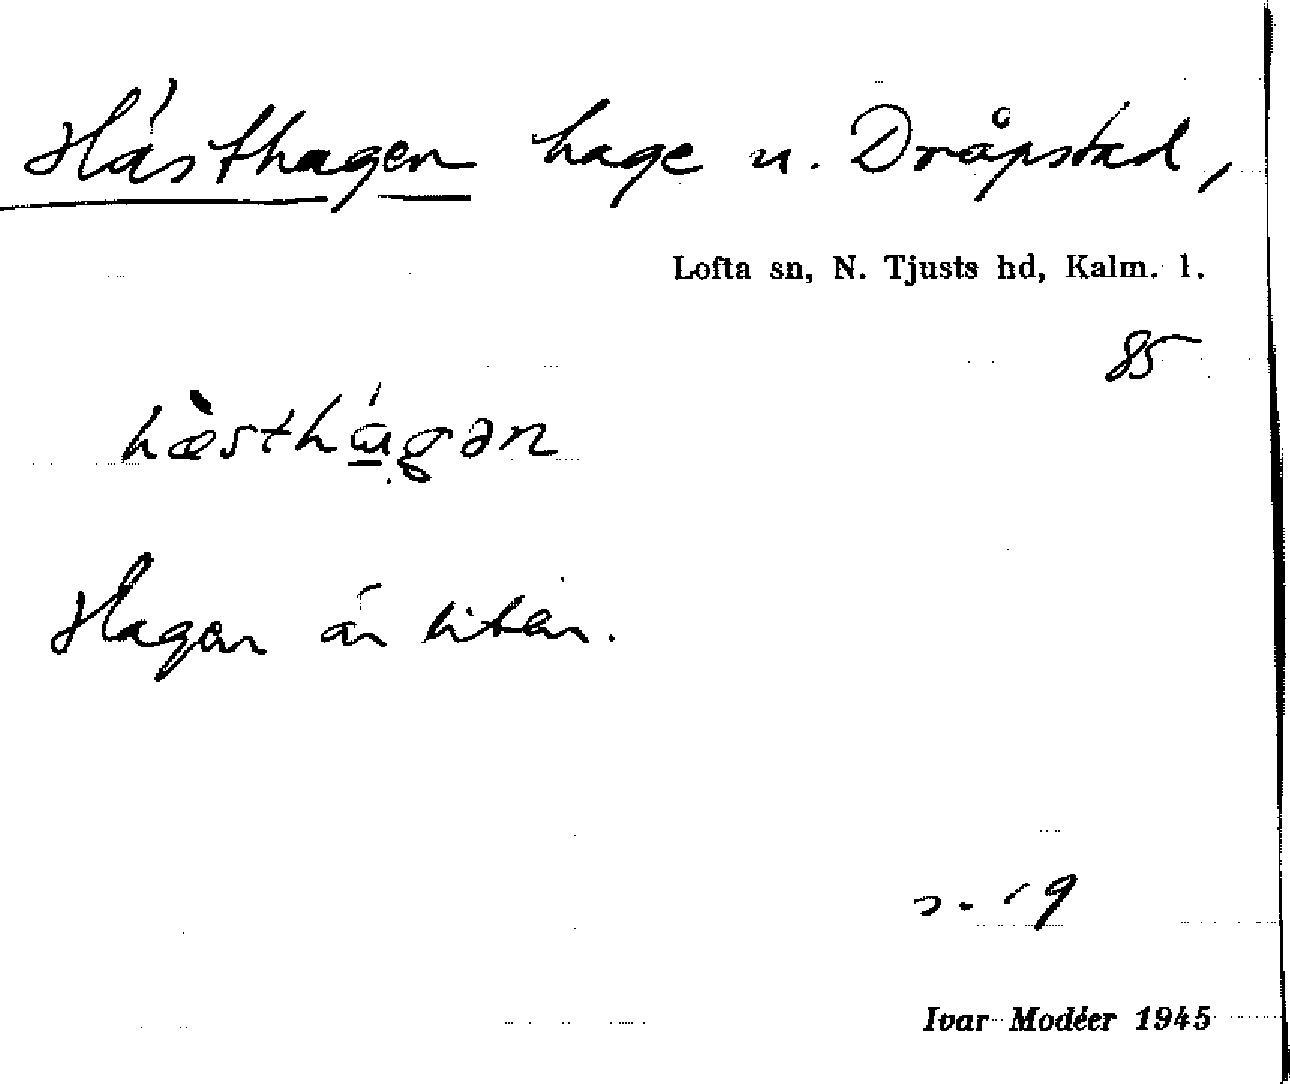 Hästhagen hage u. Dråpstad,
Lofta sn, N. Tjusts hd, Kalm. l.
85
hæ̀sthágən
Hagen är liten.
Ivar Modéer 1945